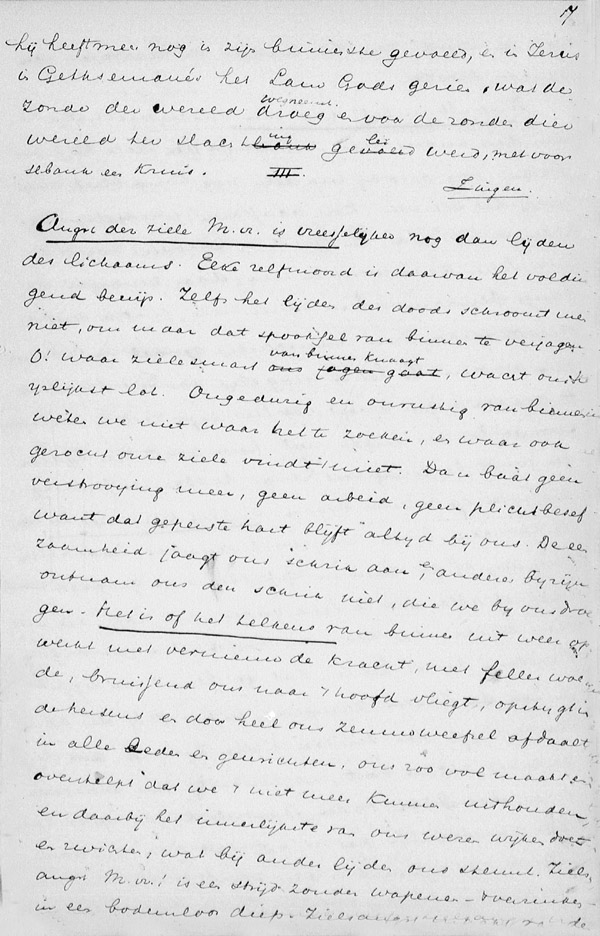 17
hij heeft meer nog in zijn binnenste gevoeld, en in Jezus
in Gethsemané het Lam Gods gezien, wat de
zonde der wereld droeg wegneemt en voor de zonden dier
wereld ter slachting geleid werd, met voor
een Kruis. III.
Zingen.
Angst der ziele M.vr. is vreeselyker nog dan lijden
des lichaams. Elke zelfmoord is daarvan het voldin
gend bewijs. Zelfs het lijden des doods schroomt men
niet, om maar dat spooksel van binnen te verjagen
O! waar zielesmart van binnen knaagt, wacht ons 't
yslijkst lot. Ongedurig en onrustig van binnen
weten we niet waar het te zoeken, en waar ook
gezocht onze ziele vindt 't niet. Dan baat geen
verstrooying meer, geen arbeid, geen plichtbesef
want dat geperste hart blijft altyd bij ons. De een
zaamheid jaagt ons schrik aan en anderer byzijn
ontnam ons den schrik niet, die we by ons droe
gen. Het is of het telkens van binnen uit weer op
werkt met vernieuwde kracht, met feller woe
de, bruisend ons naar 't hoofd vliegt, opstygt in
de hersens en door heel ons zenuwweefsel afdaalt
in alle leden en gewrichten, ons zoo vol maakt en
overstelpt dat we 't niet meer kunnen uithouden
en daarbij het innerlijkste van ons wezen wijken doet
en zwichten, wat bij ander lijden ons steunt. Ziels
angst M.vr.! is een strijd zonder wapenen - verzinken
in een bodemloos diep. Zielsangst de